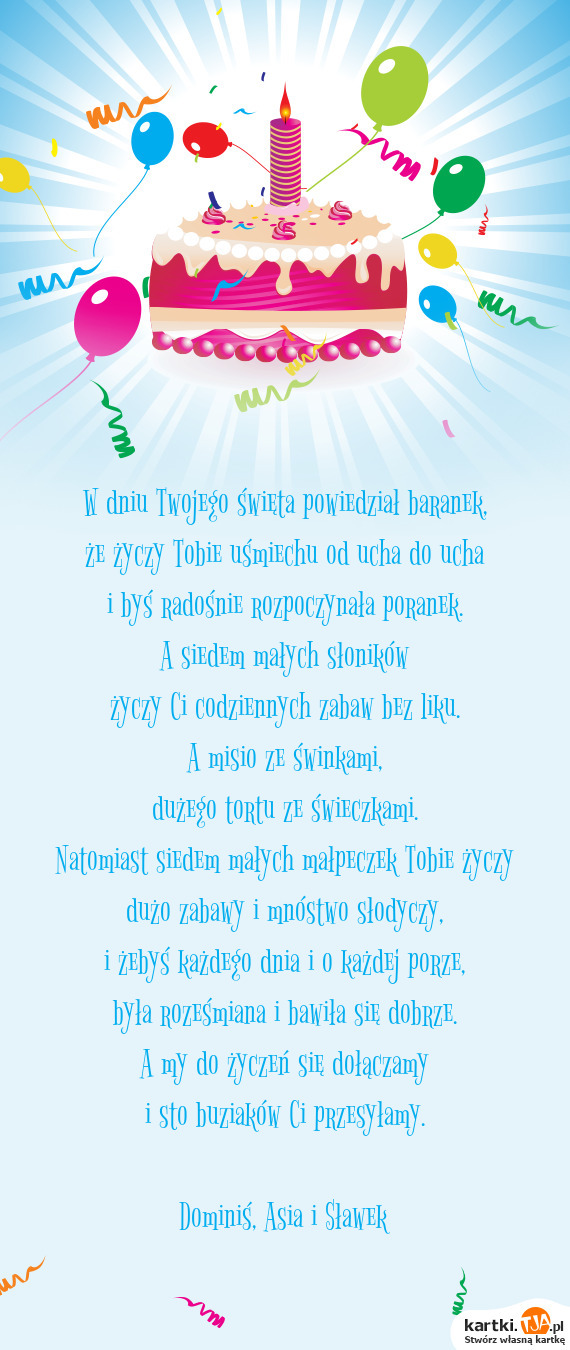 W dniu Twojego święta powiedział baranek,
że życzy Tobie uśmiechu od ucha do ucha
i byś radośnie rozpoczynała poranek.
A siedem małych słoników
życzy Ci codziennych zabaw bez liku.
A misio ze świnkami,
dużego tortu ze świeczkami.
Natomiast siedem małych małpeczek Tobie życzy
dużo zabawy i mnóstwo słodyczy,
i żebyś każdego dnia i o każdej porze,
była roześmiana i bawiła się dobrze.
A my do życzeń się dołączamy
i sto buziaków Ci przesyłamy.
Dominiś, Asia i Sławek
kartki.TJA.pl
Stwórz własną kartkę